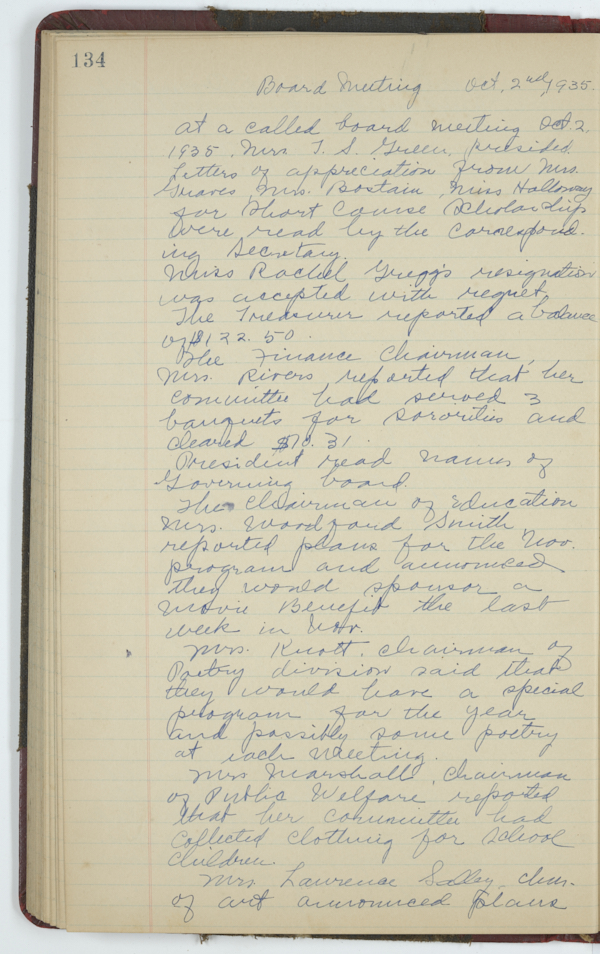 134
Board Meeting Oct. 2nd, 1935.
At a called board meeting Oct. 2,
1935, Mrs. T. S. Green, presided.
Letters of appreciation from Mrs.
Graves, Mrs. Bostain, Miss Halloway
for Short Course Scholarships
were read by the Correspond-
ing Secretary.
Miss Rachel Gregg's resignation
was accepted with regret.
The Treasurer reported a balance
of $122.50.
The Finance Chairman,
Mrs. Rivers, reported that her
committee had served 3
banquets for sororities and
cleared $70.31.
President read names of
Governing board.
The Chairman of Education
Mrs. Woodford Smith
reported plans for the Nov.
program and announced
they would sponsor a
Movie Benefit the last
week in Nov.
Mrs. Knott, chairman of
Poetry division said that
they would have a special
program for the year
and possibly some poetry
at each meeting.
Mrs Marshall, Chairman
of Public Welfare reported
that her committee had
collected clothing for school
children.
Mrs Lawrence Salley, chm.
of art announced plans